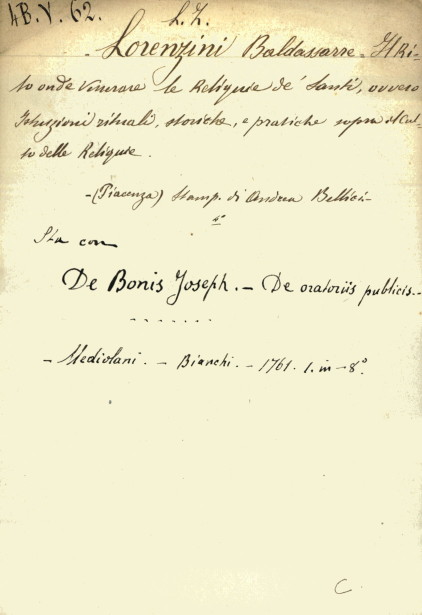 4B.V.62. L.L.
Lorenzini Baldassarre - Il Ri-
to onde venerare le Reliquie de' Santi, ovvero
Istruzioni rituali, storiche, e pratiche sopra il Cul-
to delle Reliquie.
-(Piacenza) Stamp. di Andrea Bellici-
4°
Sta con
De Bonis Joseph. - De oratoriis publicis.-
.......
- Mediolani. - Bianchi. - 1761. 1. in - 8°.
C